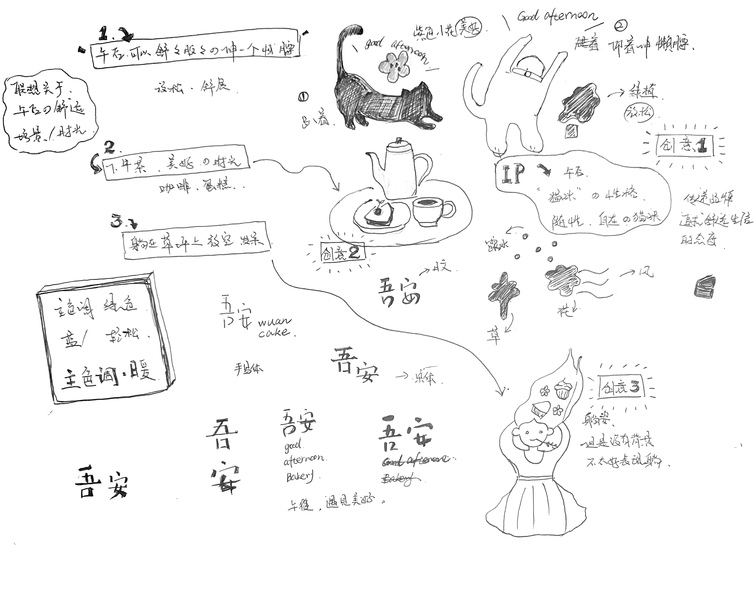 1.
午后可以舒舒服服的伸一个懒腰
放松·舒展
联想关于
午后の舒适
场景/时光
①
趴着
good afternoon
黑色小花 美好
Good afternoon
②
伸懒腰
绿植
放松
创意1
2
下午茶、美好の时光
咖啡、蛋糕
IP
午后
"猫咪"の性格
随性、自在の猫咪
生活
的态度
3.
躺在草坪上放空 发呆
创意2
露水
草
花
风
主色调 绿色
蓝/ 轻松
主色调·暖
吾安
wuan
cake.
手写体
吾安
吾安
吾安
吾安
吾安
good
afternoon.
Bakery.
吾安
Good afternoon.
Bakery.
午后,遇见美好。
创意3
躺姿
但是没有背景
不太好表现躺